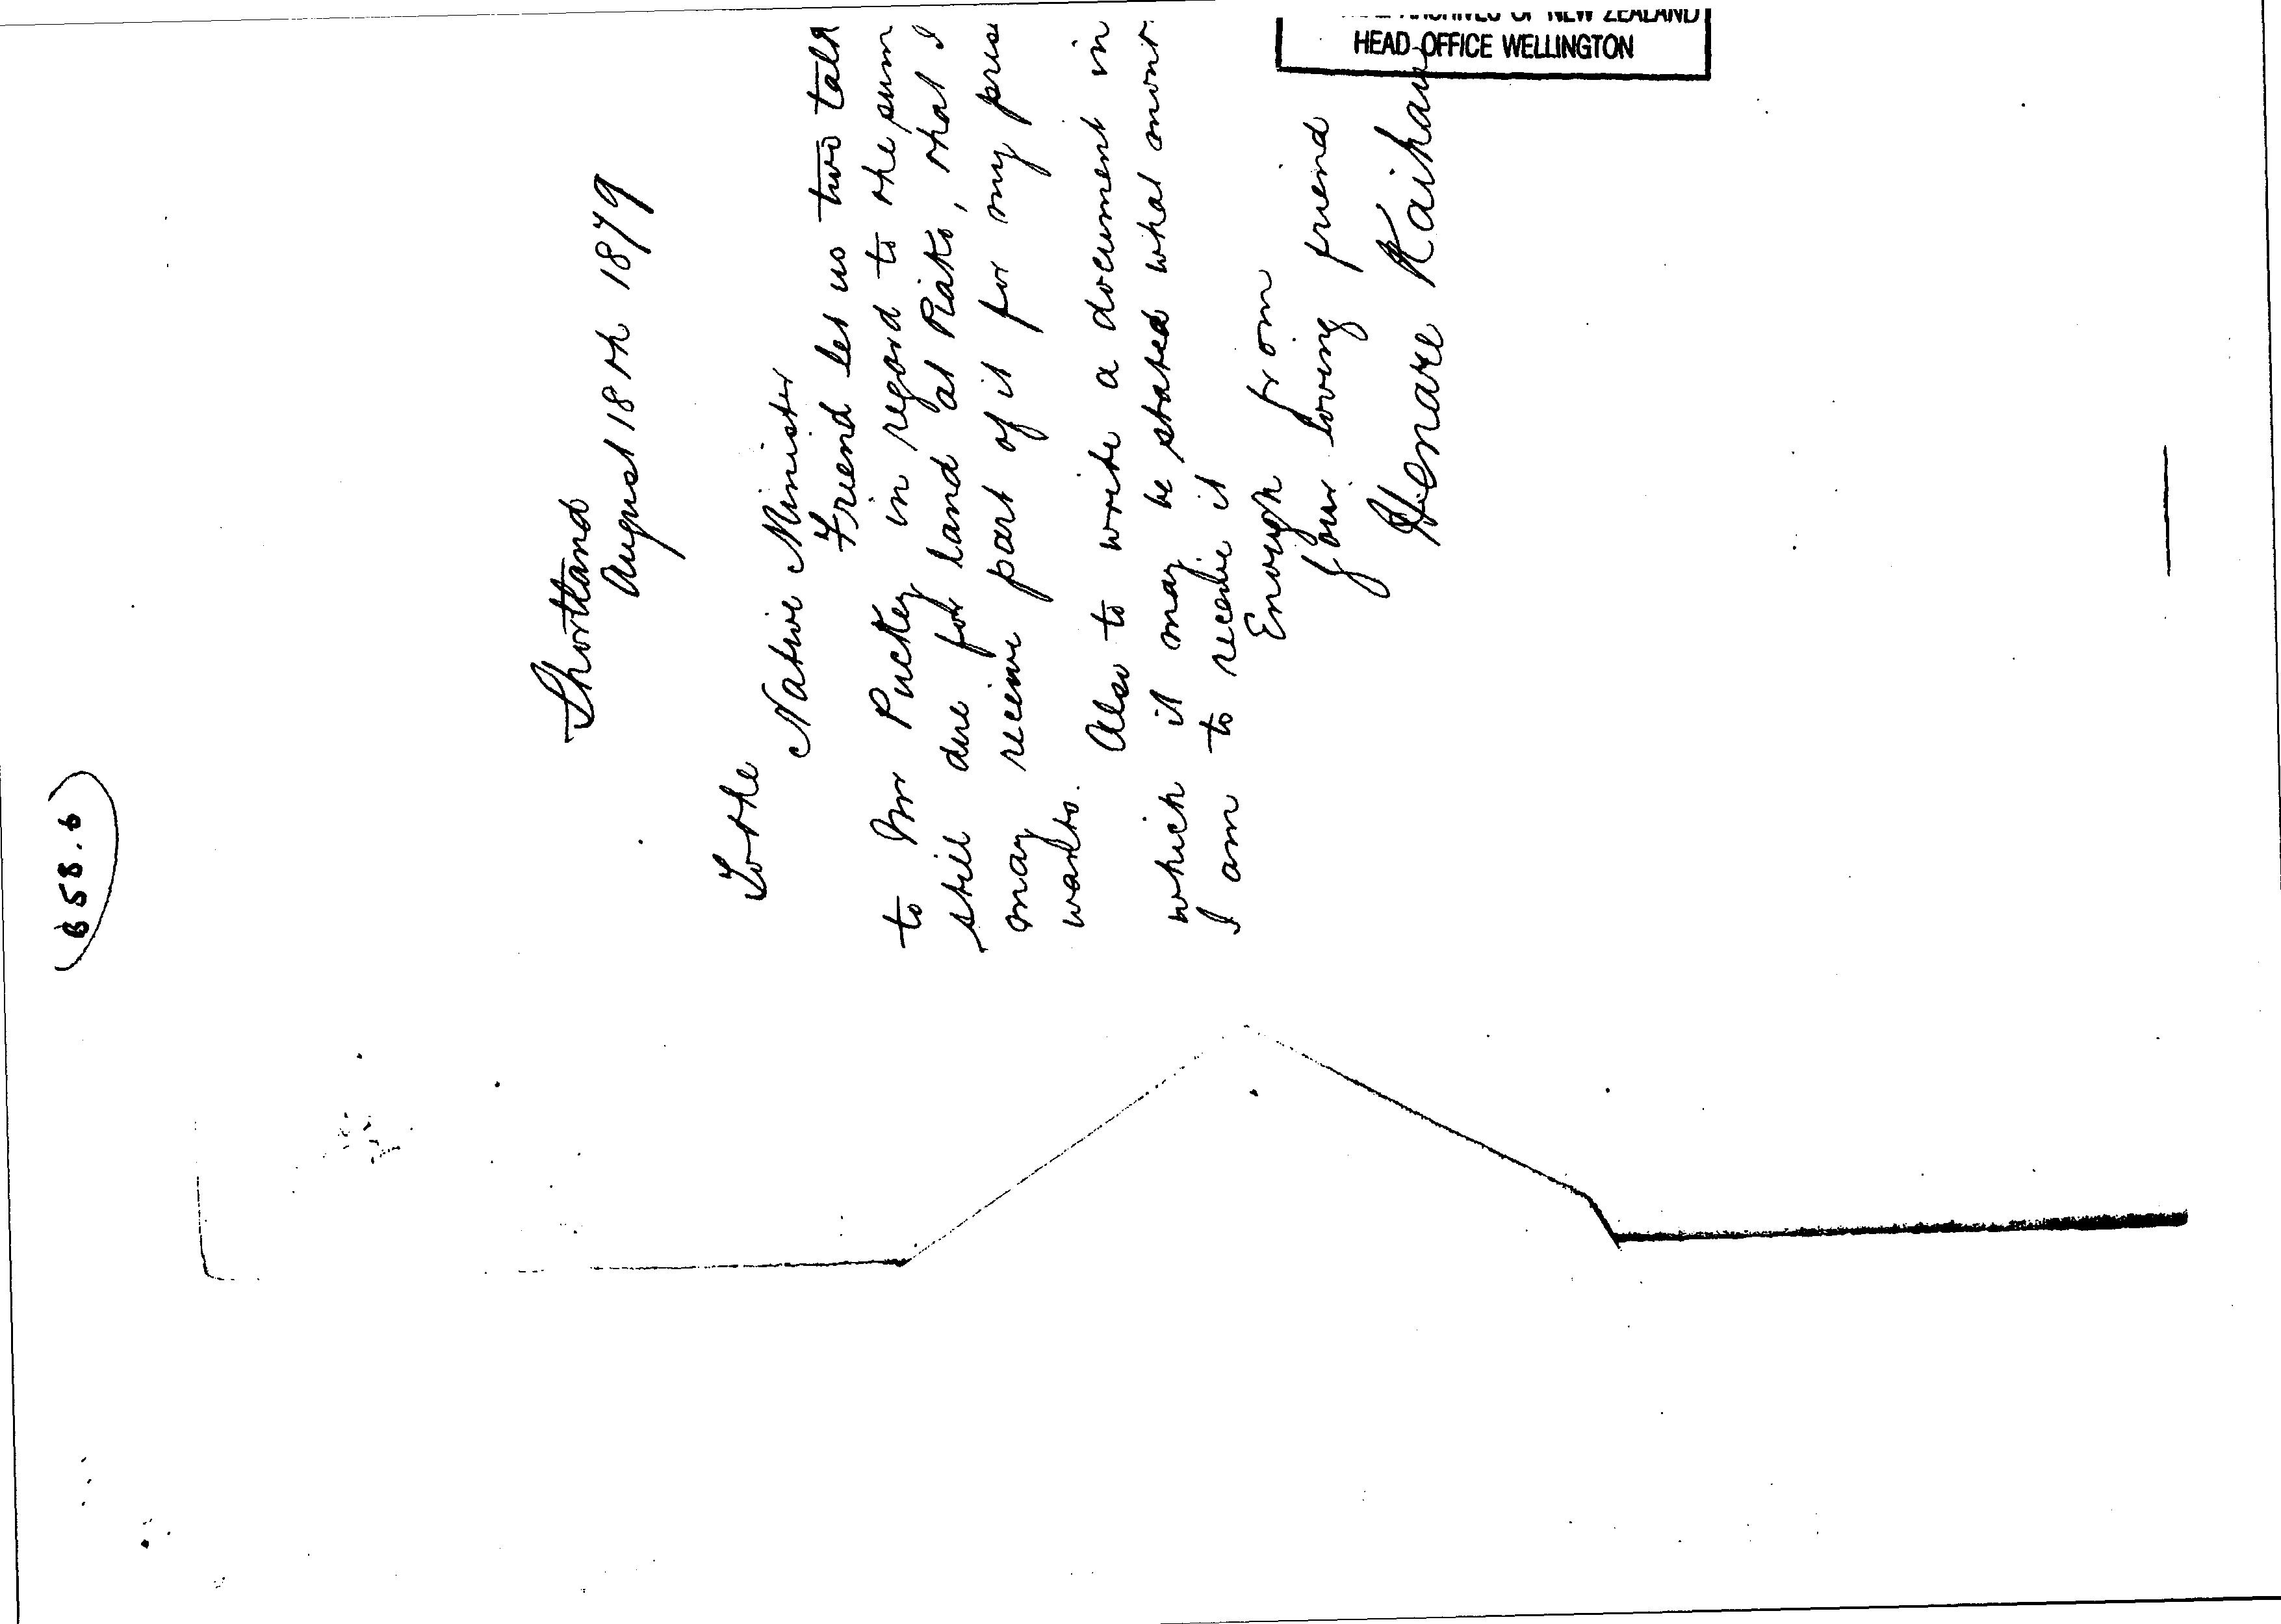 B 58.6
Shortland
August 18th 1879
To the
Native Minister
Friend let us two talk
to Mr Puckey in regard to the sum
still due for land at Piako, that I
may receive part of it for my pres
wants. Also to write a document in
which it may be stated what mont
I am to receive it
Enough from
your loving friend
Henare Kaihau
ARCHIVES OF NEW ZEALAND
HEAD OFFICE WELLINGTON